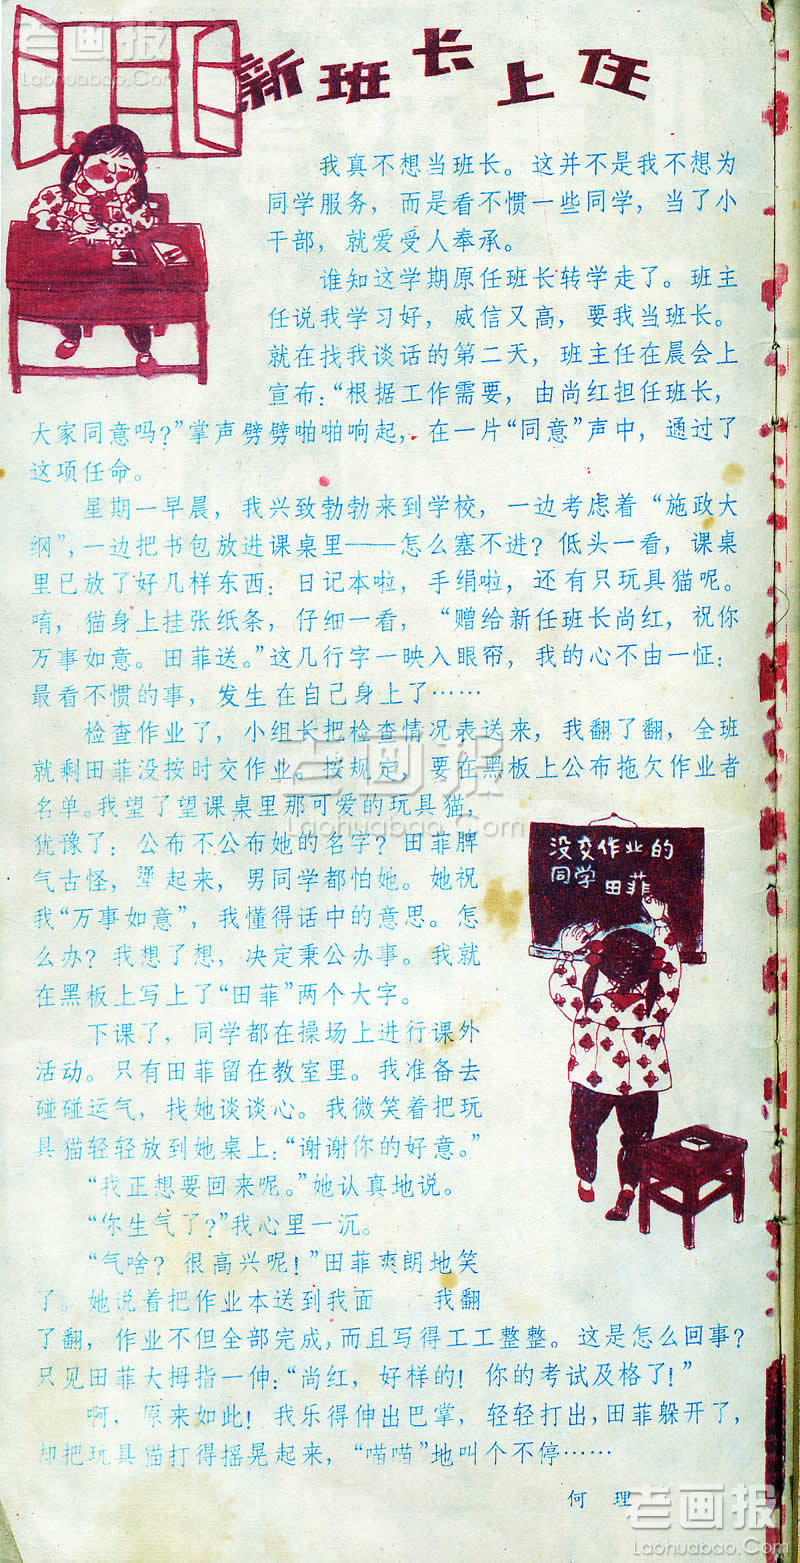 老画报
Laohuabao.Com
新班长上任
我真不想当班长。这并不是我不想为
同学服务，而是看不惯一些同学，当了小
干部，就爱受人奉承。
谁知这学期原任班长转学走了。班主
任说我学习好，威信又高，要我当班长。
就在找我谈话的第二天，班主任在晨会上
宣布：“根据工作需要，由尚红担任班长，
大家同意吗？”掌声劈劈啪啪响起，在一片“同意”声中，通过了
这项任命。
星期一早晨，我兴致勃勃来到学校，一边考虑着“施政大
纲”，一边把书包放进课桌里——怎么塞不进？低头一看，课桌
里已放了好几样东西：日记本啦，手绢啦，还有只玩具猫呢。
唷，猫身上挂张纸条，仔细一看，“赠给新任班长尚红，祝你
万事如意。田菲送。”这几行字一映入眼帘，我的心不由一怔：
最看不惯的事，发生在自己身上了……
检查作业了，小组长把检查情况表送来，我翻了翻，全班
就剩田菲没按时交作业。按规定，要在黑板上公布拖欠作业者
名单。我望了望课桌里那可爱的玩具猫，
犹豫了：公布不公布她的名字？田菲脾
气古怪，犟起来，男同学都怕她。她祝
我“万事如意”，我懂得话中的意思。怎
么办？我想了想，决定秉公办事。我就
在黑板上写上了“田菲”两个大字。
老画报
Laohuabao.Com
没交作业的
同学 田菲
下课了，同学都在操场上进行课外
活动。只有田菲留在教室里。我准备去
碰碰运气，找她谈谈心。我微笑着把玩
具猫轻轻放到她桌上：“谢谢你的好意。”
“我正想要回来呢。”她认真地说。
“你生气了？”我心里一沉。
“气啥？很高兴呢！”田菲爽朗地笑
了。她说着把作业本送到我面 我翻
了翻，作业不但全部完成，而且写得工工整整。这是怎么回事？
只见田菲大拇指一伸：“尚红，好样的！你的考试及格了！”
啊，原来如此！我乐得伸出巴掌，轻轻打出，田菲躲开了，
却把玩具猫打得摇晃起来，“喵喵”地叫个不停……
何 理
老画报
Laohuabao.Com